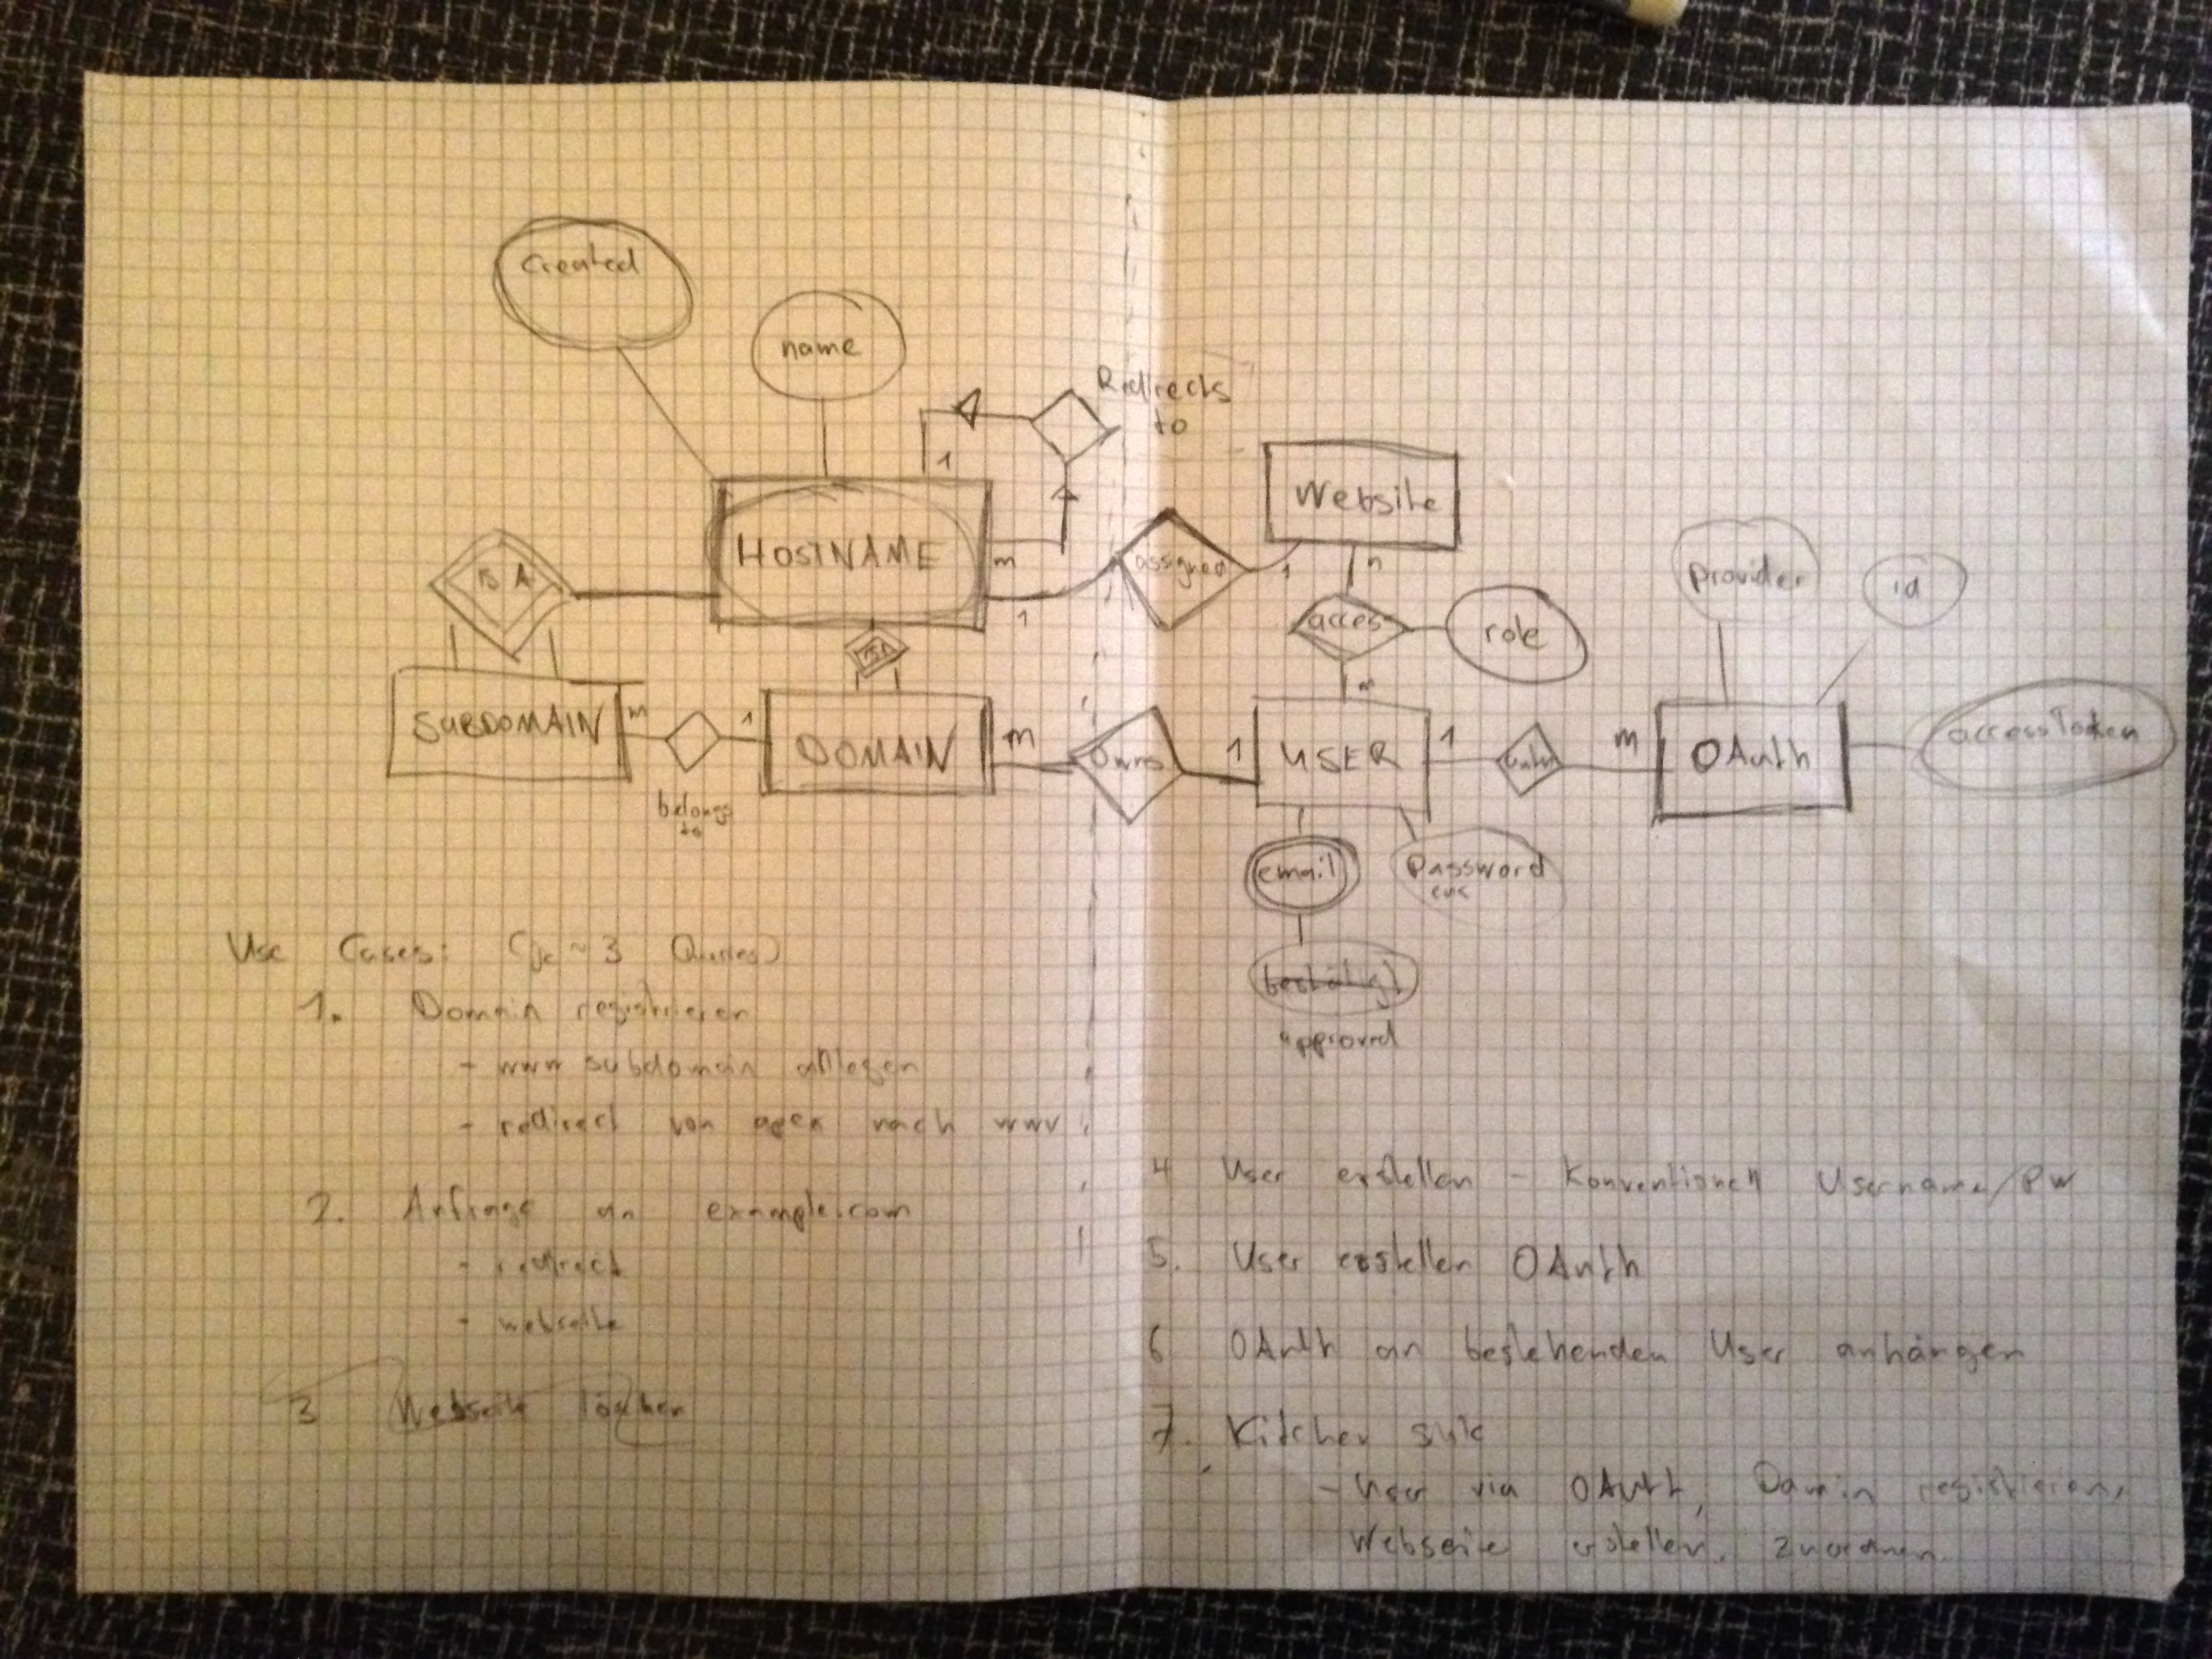 created
name
Redirects
to
IS A
HOSTNAME
1
m
1
assigned
1
Website
SUBDOMAIN
m
belongs
to
1
DOMAIN
m
Owns
1
USER
n
access
n
role
email
bestätigt
approved
Password
1
m
OAuth
Provider
id
accessToken
Use Cases: (je ~3 Queries)
1. Domain registrieren
- www subdomain anlegen
- redirect von apex nach www
2. Anfrage an example.com
- redirect
- website
3 Webseite löschen
4 User erstellen - Konventionell Username/PW
5. User erstellen OAuth
6 OAuth an bestehenden User anhängen
7. Kitchen sink
- User via OAuth, Domain registrieren,
Webseite erstellen, zuordnen.